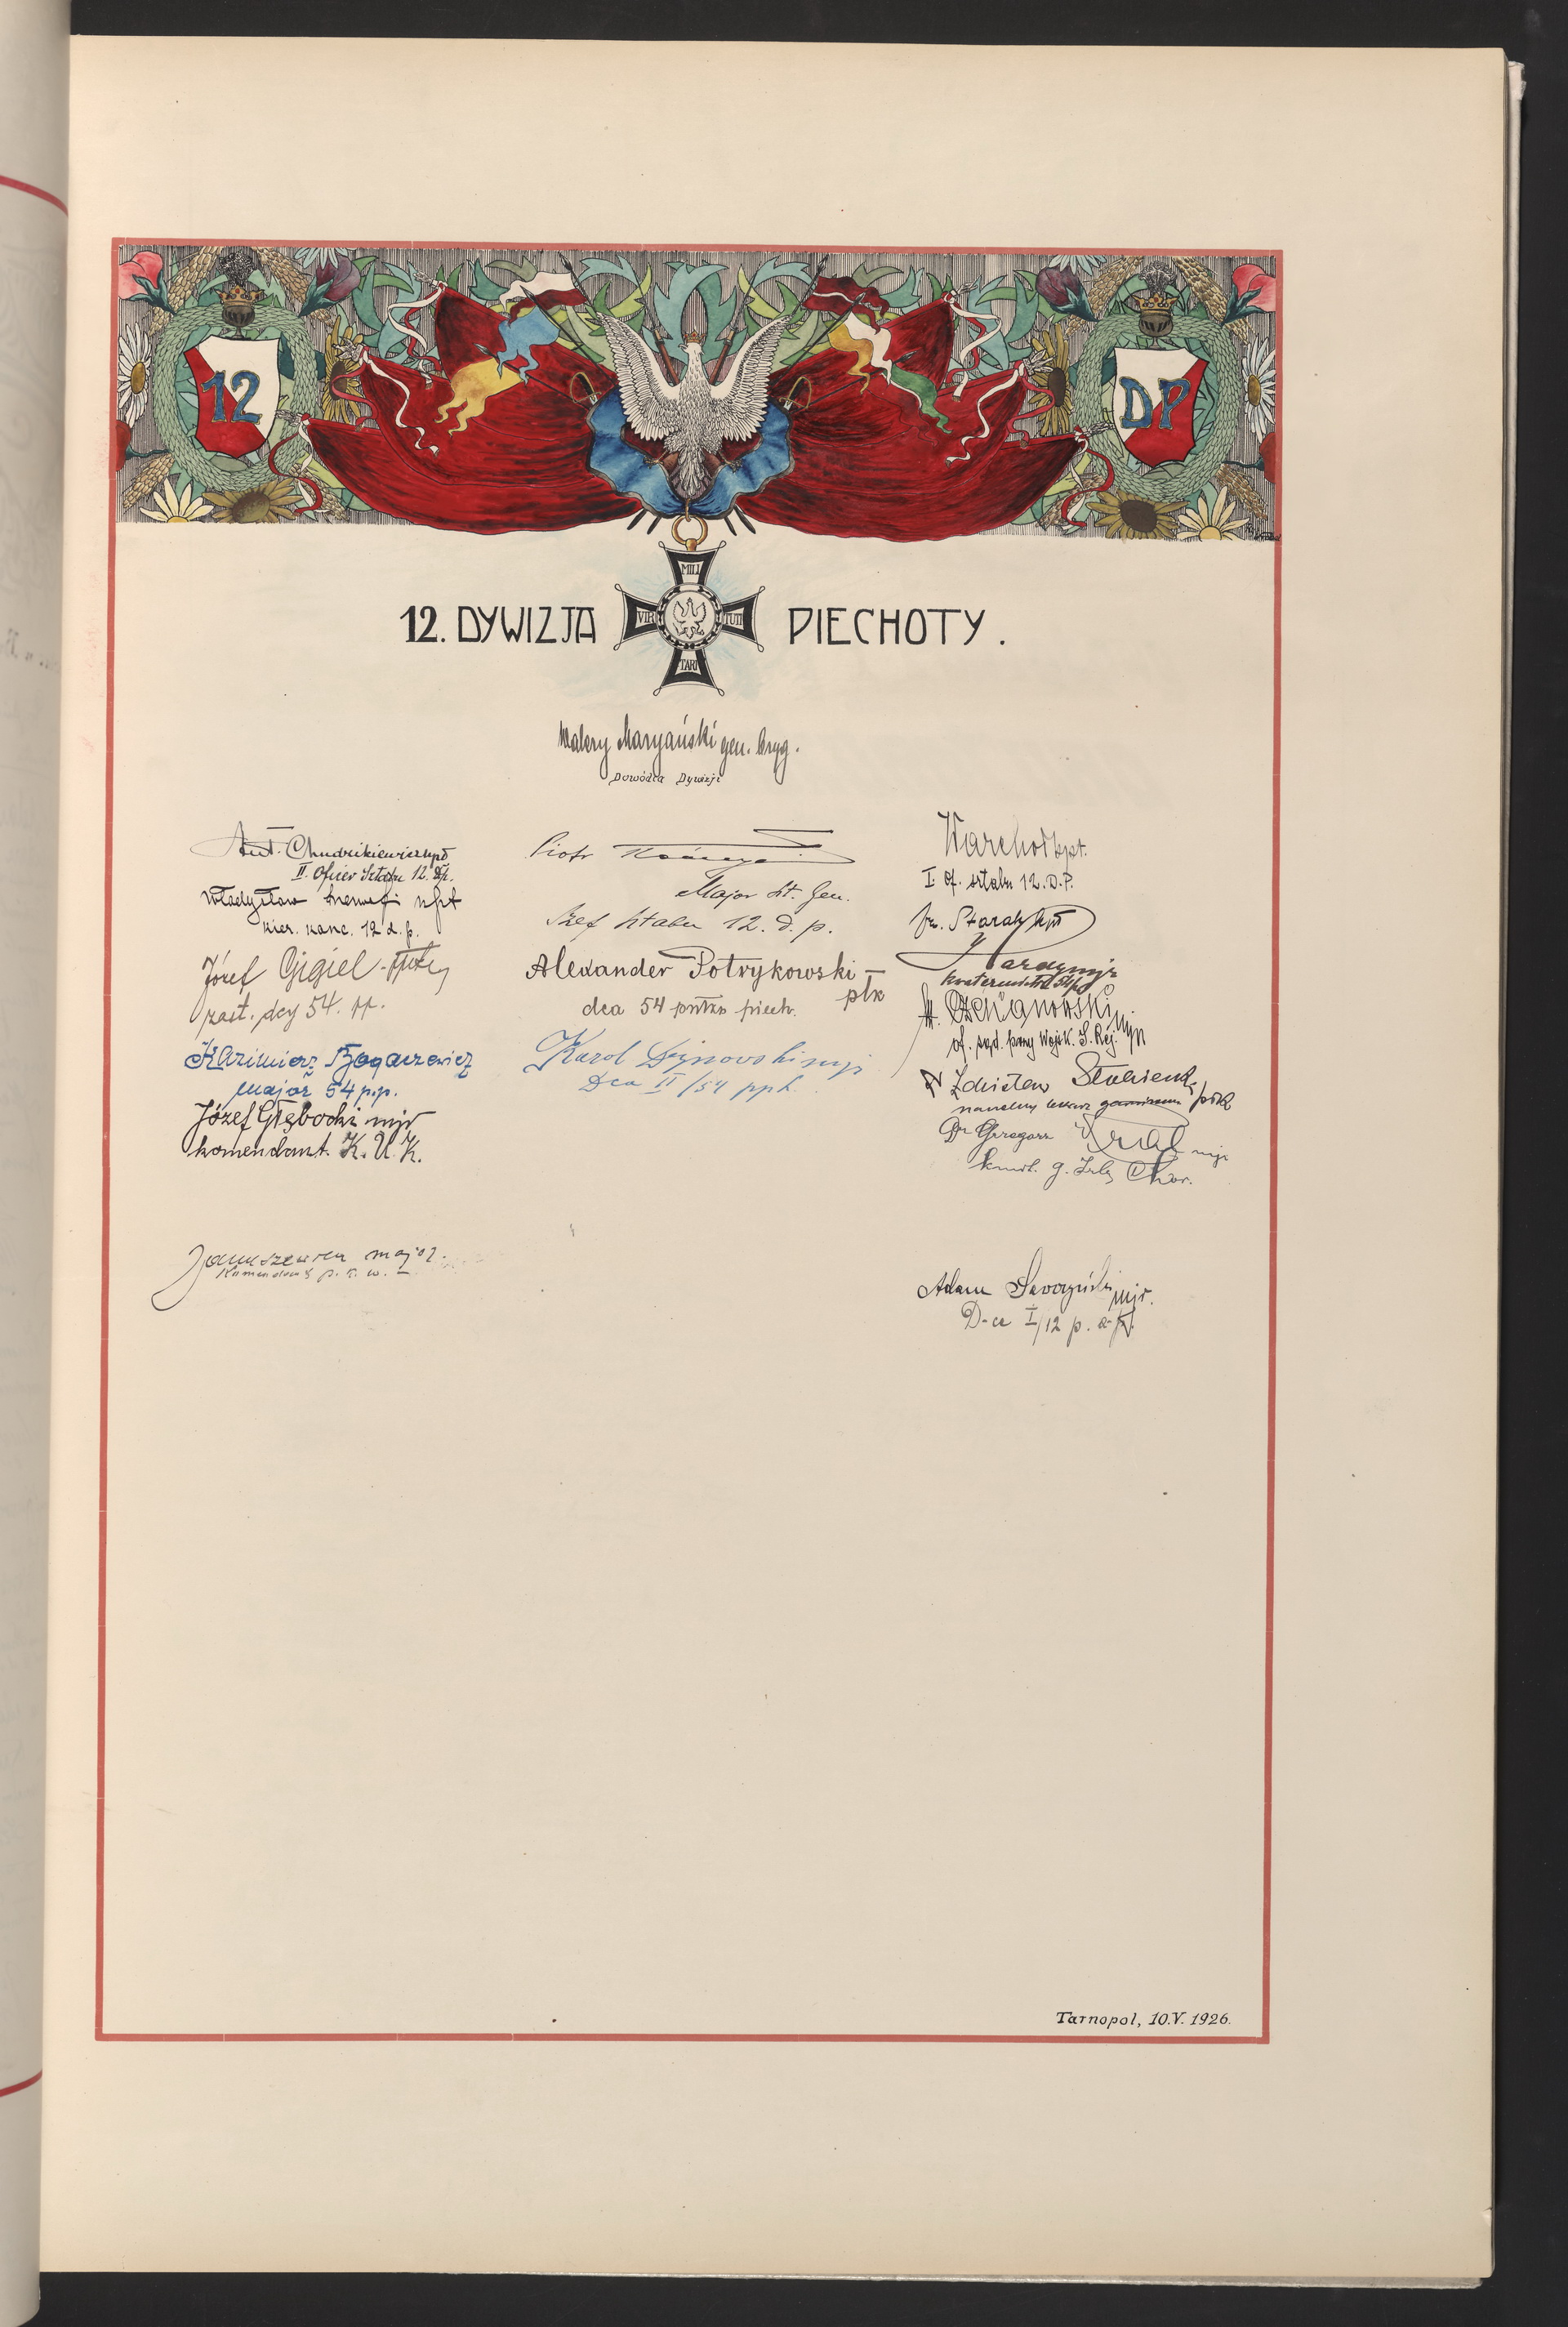 12
DP
MILI
VIR
TUTI
TARI
12. DYWIZJA PIECHOTY.
Walery Maryański gen. bryg.
Dowódca Dywizji
Ant. Chudzikiewicz kpt
II. Oficer Sztabu 12. Dp.
Władysław kpt
kier. kanc. 12 d. p.
Józef Gigiel
zast. dcy 54. pp.
Kazimierz Bogaczewicz
major 54 p.p.
Józef Głębocki mjr
komendant. K. U. K.
major.
Komendant p. w.
Piotr
Major Szt. Gen.
Szef Sztabu 12. d. p.
Alexander Potrykowski płk
dca 54 pułku piech.
Karol mjr
Dca II/54 pph.
Warchoł kpt.
I. of. sztabu 12. D.P.
kpt
mjr
kwatermistrz 54 pp
mjr
of. sąd. przy Wojsk. S. Rej.
Zdzisław
naczelny lekarz garnizonu
Dr Grzegorz mjr
kmdt. g. Izby Chor.
Adam mjr.
D-ca I/12 p. a. p.
Tarnopol, 10.V. 1926.